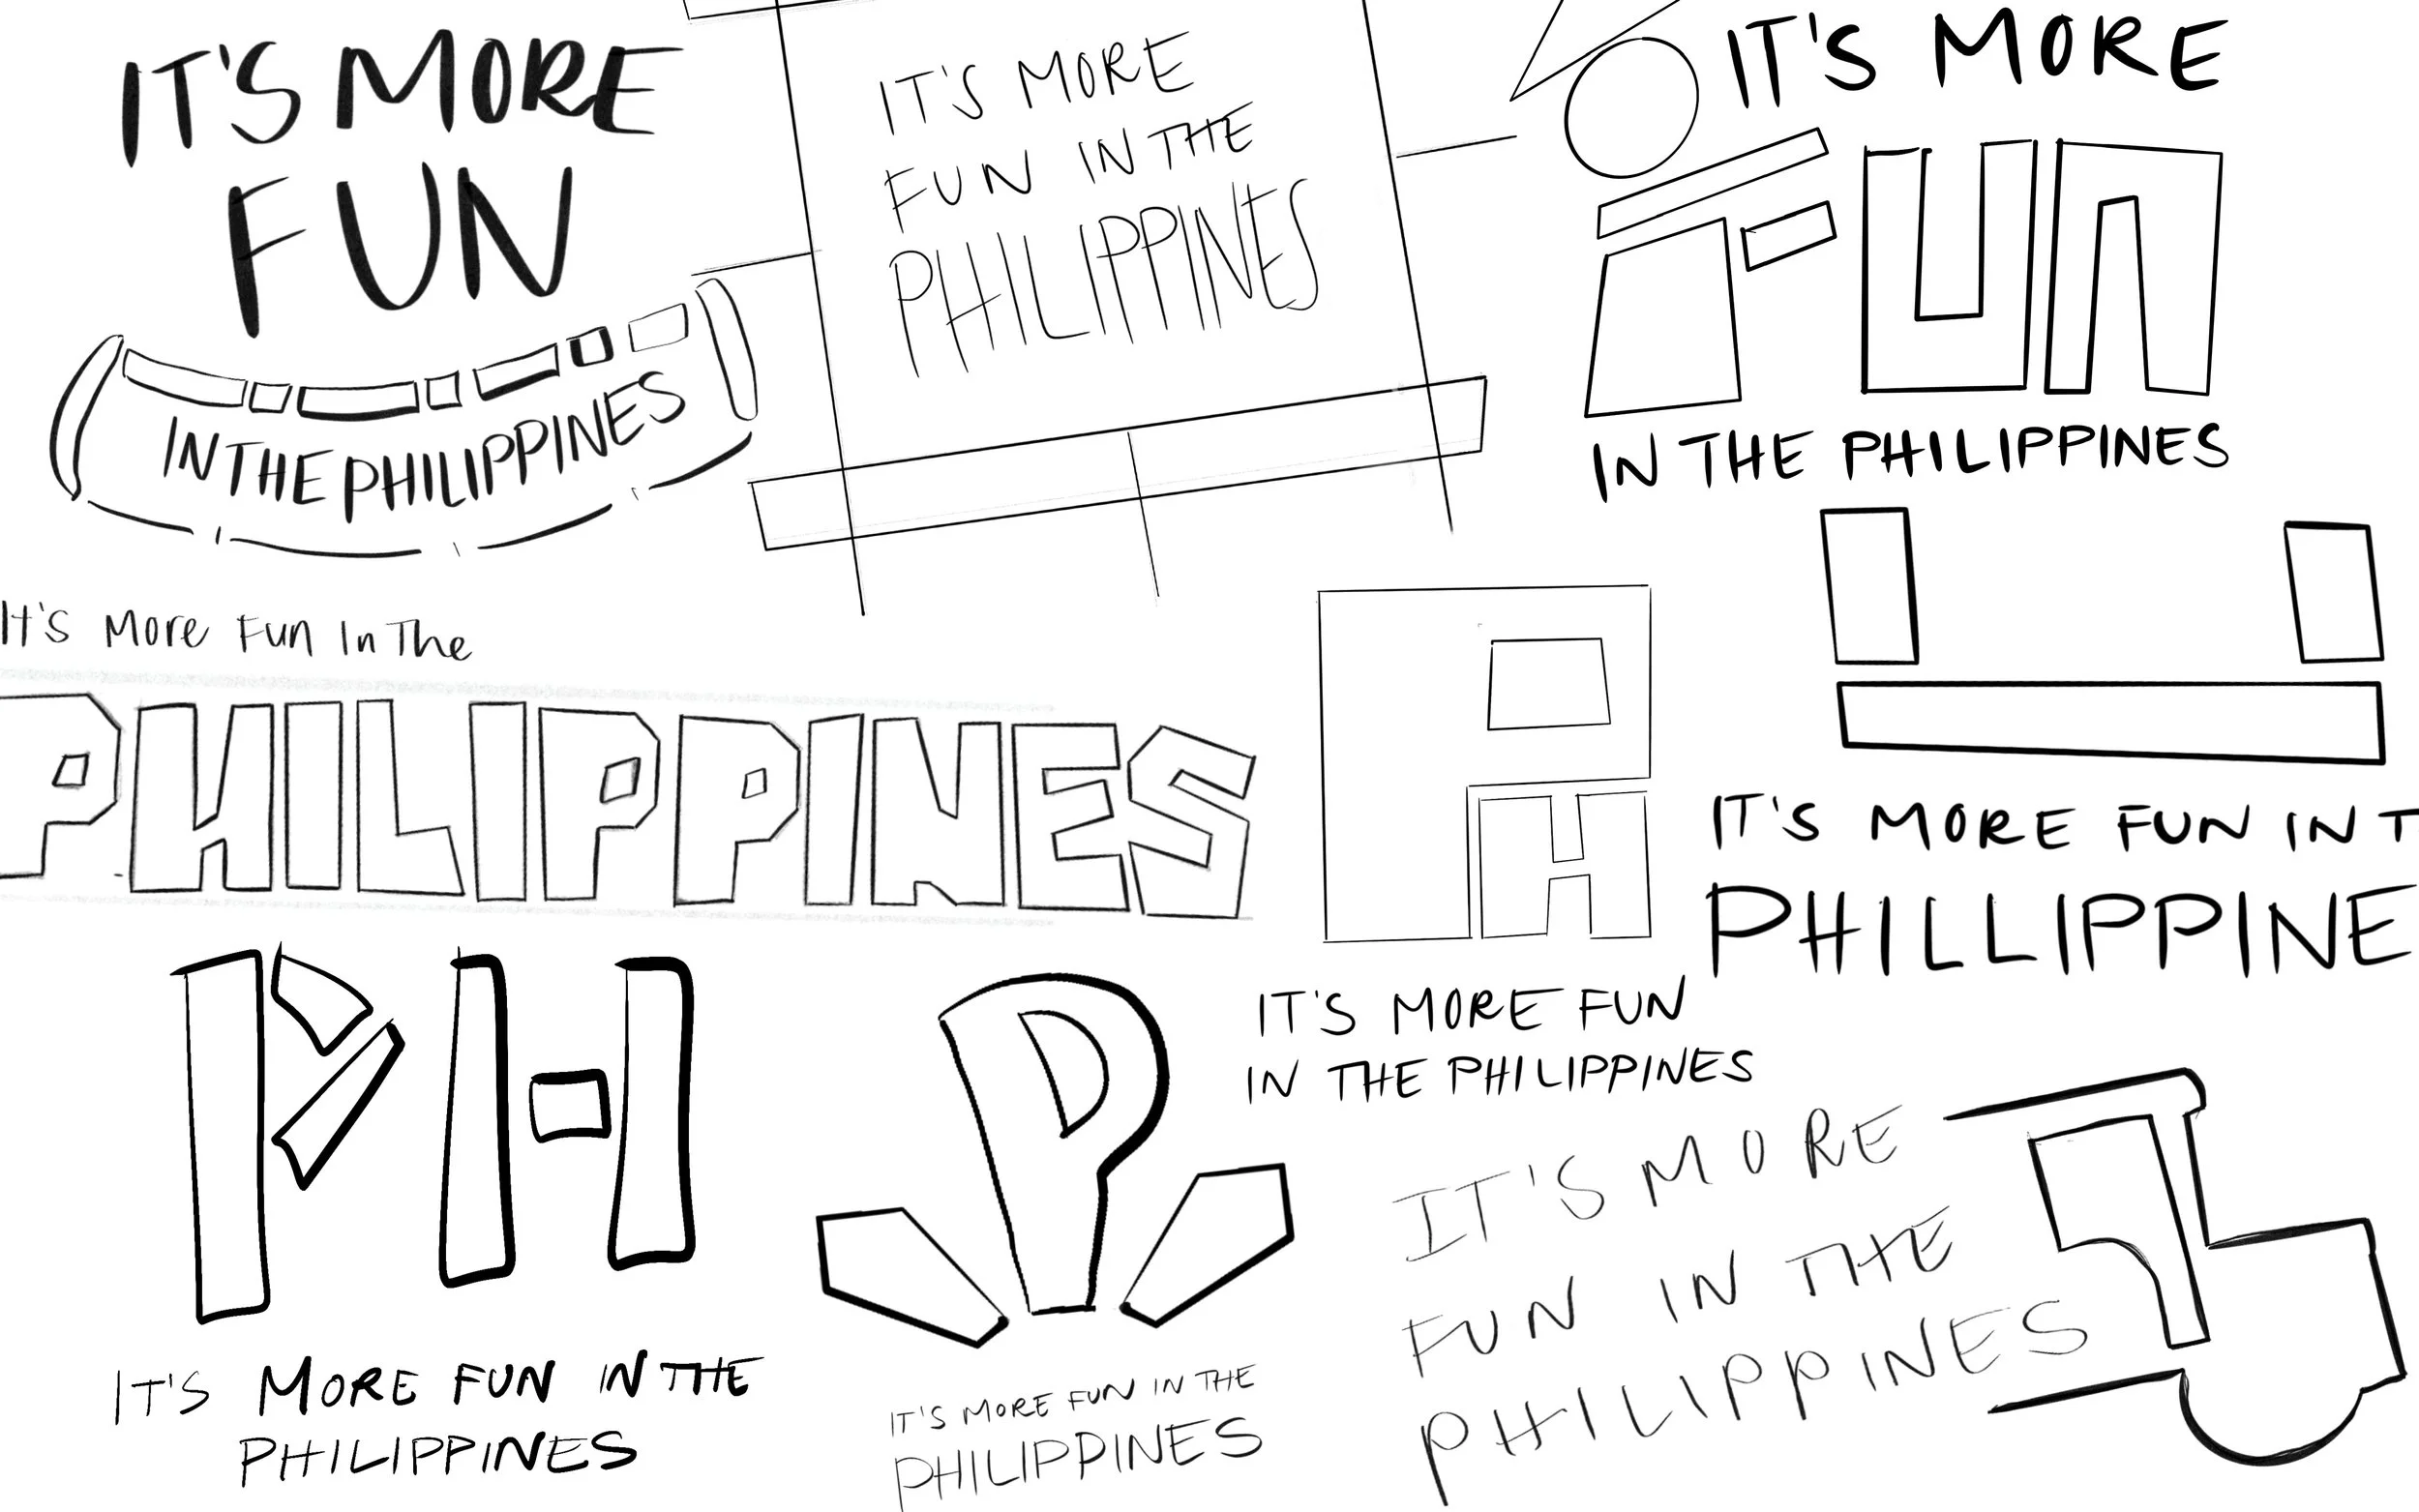 IT'S MORE
FUN
IN THE PHILIPPINES
IT'S MORE
FUN IN THE
PHILIPPINES
IT'S MORE
FUN
IN THE PHILIPPINES
It's More Fun In The
PHILIPPINES
PH
IT'S MORE FUN
IN THE PHILIPPINES
IT'S MORE FUN IN T
PHILLIPPINE
PH
IT'S MORE FUN IN THE
PHILIPPINES
P
IT'S MORE FUN IN THE
PHILIPPINES
IT'S MORE
FUN IN THE
PHILIPPINES